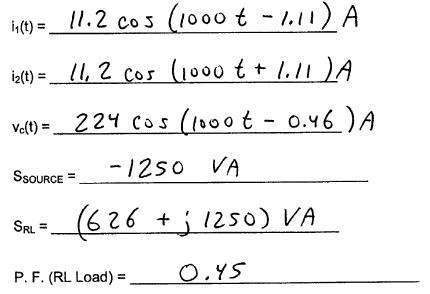 i₁(t) = 11.2 cos (1000 t - 1.11) A
i₂(t) = 11.2 cos (1000 t + 1.11) A
v꜀(t) = 224 cos (1000 t - 0.46) A
S_SOURCE = -1250 VA
S_RL = (626 + j 1250) VA
P. F. (RL Load) = 0.45